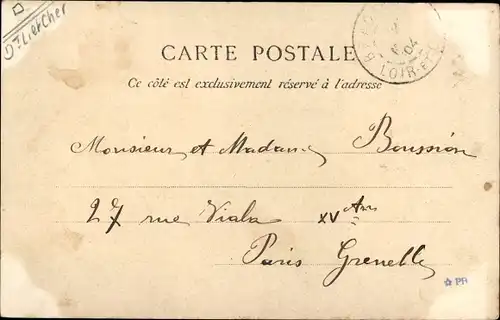 Dt Lr et Cher
CARTE POSTALE
Ce côté est exclusivement réservé à l'adresse
04
LOIR-ET
Monsieur et Madame Boussion
27 rue Viala XV Arr
Paris Grenelle
PR